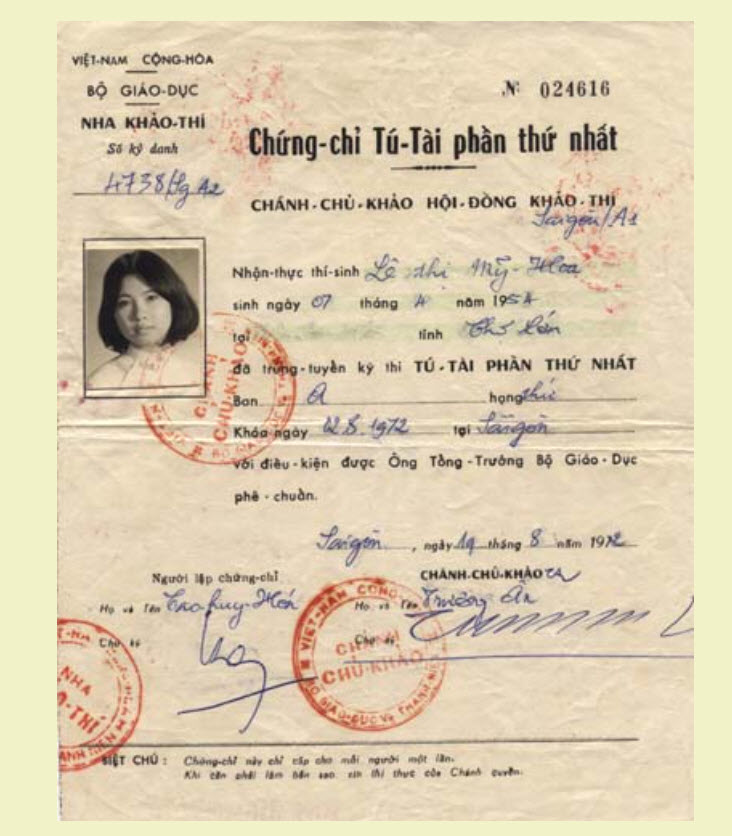 VIỆT-NAM CỘNG-HÒA
BỘ GIÁO-DỤC
NHA KHẢO-THÍ
Số ký danh
4738/Sg A2
№ 024616
Chứng-chỉ Tú-Tài phần thứ nhất
CHÁNH-CHỦ-KHẢO HỘI-ĐỒNG KHẢO-THÍ
Saigon/A1
Nhận-thực thí-sinh Lê thị Mỹ-Hoa
sinh ngày 07 tháng 4 năm 1954
tại tỉnh Chợ Lớn
đã trúng-tuyển kỳ thi TÚ-TÀI PHẦN THỨ NHẤT
Ban A hạng thứ
Khóa ngày 02.8.1972 tại Saigon
với điều-kiện được Ông Tổng-Trưởng Bộ Giáo-Dục
phê-chuẩn.
Saigon, ngày 19 tháng 8 năm 1972
Người lập chứng-chỉ
CHÁNH-CHỦ-KHẢO
Họ và Tên Cao huy-
Họ và Tên Trương Ân
Chữ ký
Chữ ký
CHÁNH
CHỦ-KHẢO
VIỆT-NAM CỘNG
CHÁNH
CHỦ-KHẢO
BỘ GIÁO-DỤC VÀ THANH-NIÊN
NHA
BIỆT CHÚ : Chứng-chỉ này chỉ cấp cho mỗi người một lần.
Khi cần phải làm bản sao, xin thị thực của Chánh quyền.